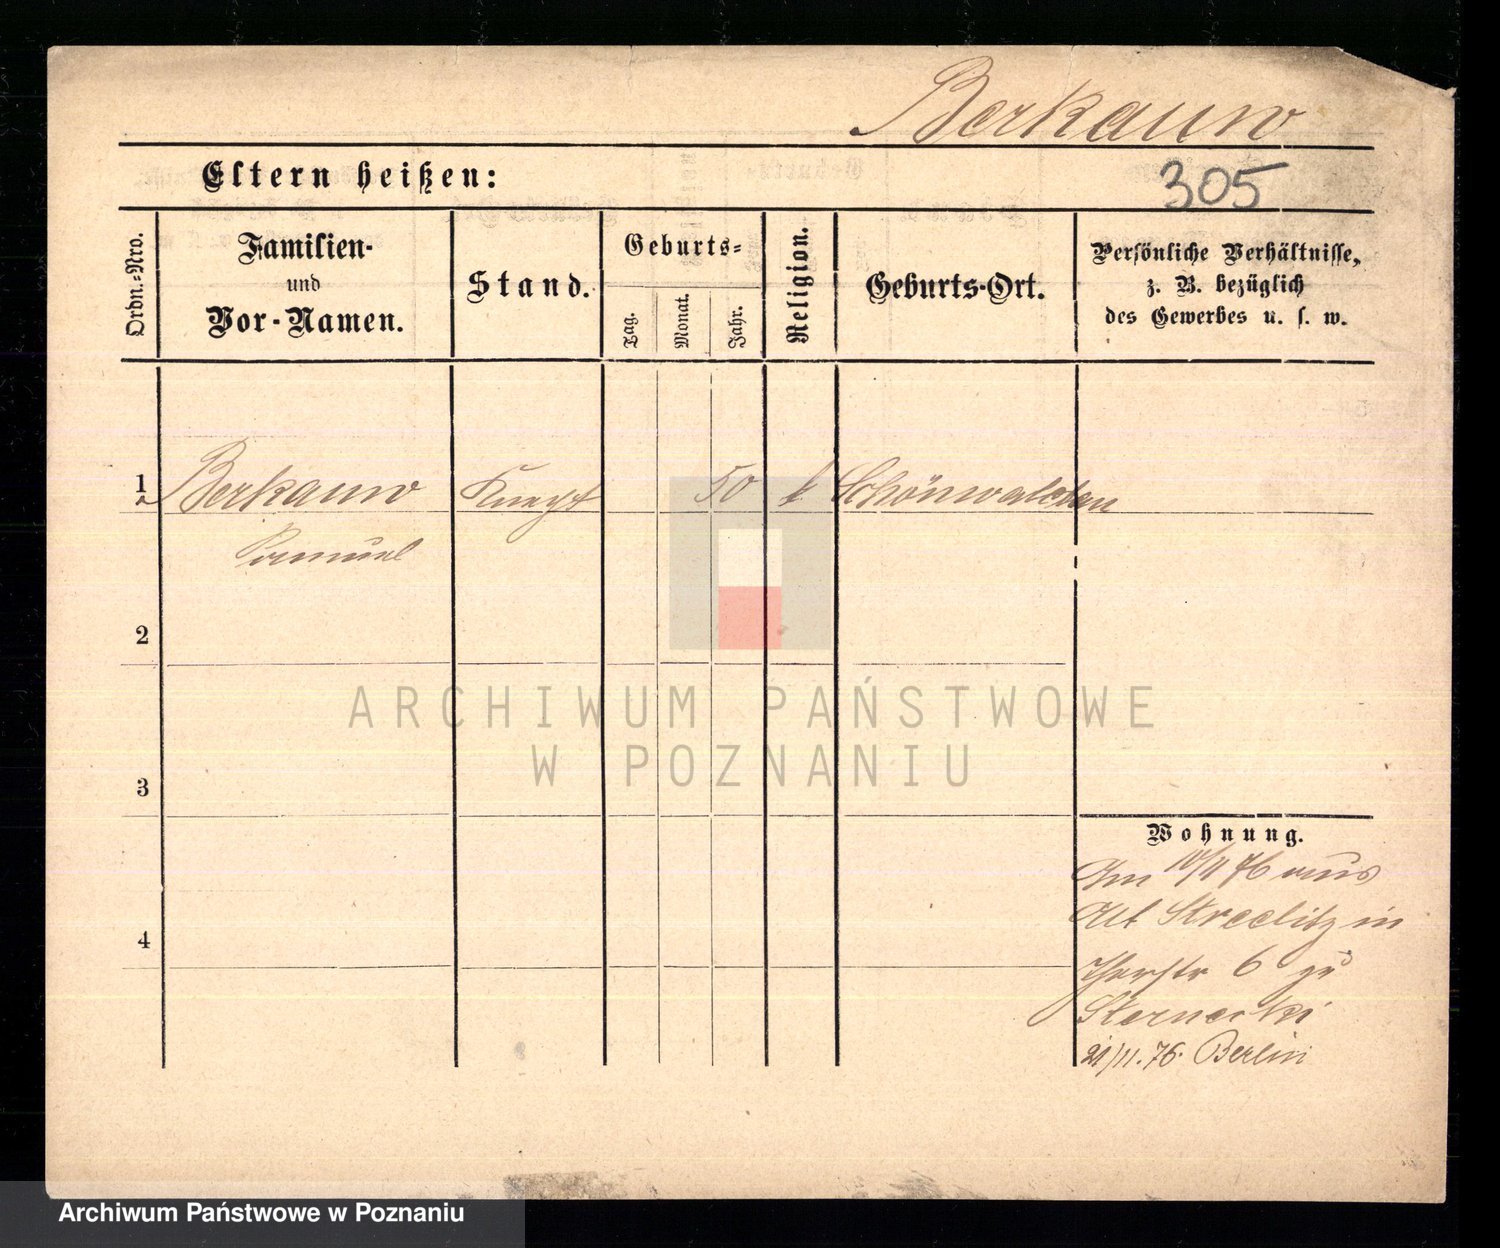 Berkauw
305
Eltern heißen:
Ordn.-Nro.
Familien-
und
Vor-Namen.
Stand.
Geburts-
Tag.
Monat.
Jahr.
Religion.
Geburts-Ort.
Persönliche Verhältnisse,
z. B. bezüglich
des Gewerbes u. s. w.
1 Berkauw Knecht 50 k Schönwalde
Samuel
2
3
4
Wohnung.
Am 10/11 76 aus
Alt Streelitz in
6 zu
21/11.76. Berlin
ARCHIWUM PAŃSTWOWE
W POZNANIU
Archiwum Państwowe w Poznaniu